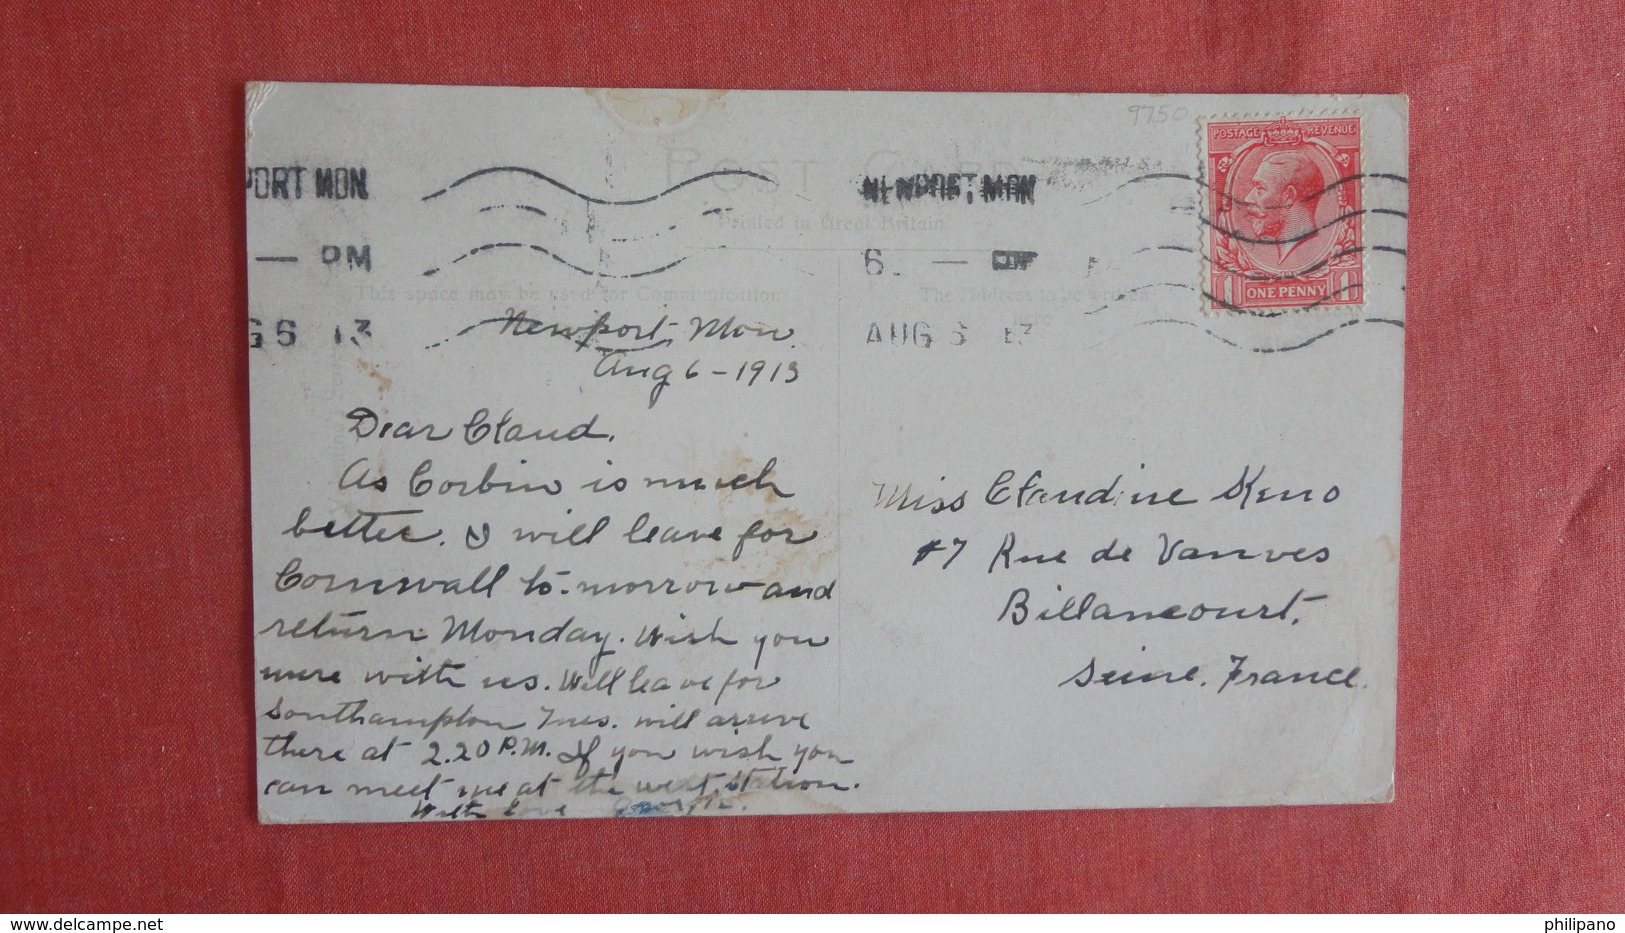 9750
POST CARD
Printed in Great Britain
POSTAGE REVENUE
1 ONE PENNY 1
PORT MON
NEWPORT, MON
— PM
6. — PM
G 6 13
AUG 6 13
This space may be used for Communication
The Address to be written
here
Newport, Mon.
Aug 6 - 1913
Dear Claud.
As Corbin is much
better. I will leave for
Cornwall to-morrow and
return Monday. Wish you
were with us. Will leave for
Southampton Tues. will arrive
there at 2.20 P.M. If you wish you
can meet me at the west station.
With love
Miss Claudine Keno
#7 Rue de Vanves
Billancourt,
Seine. France.
https://www.delcampe.net
philipano